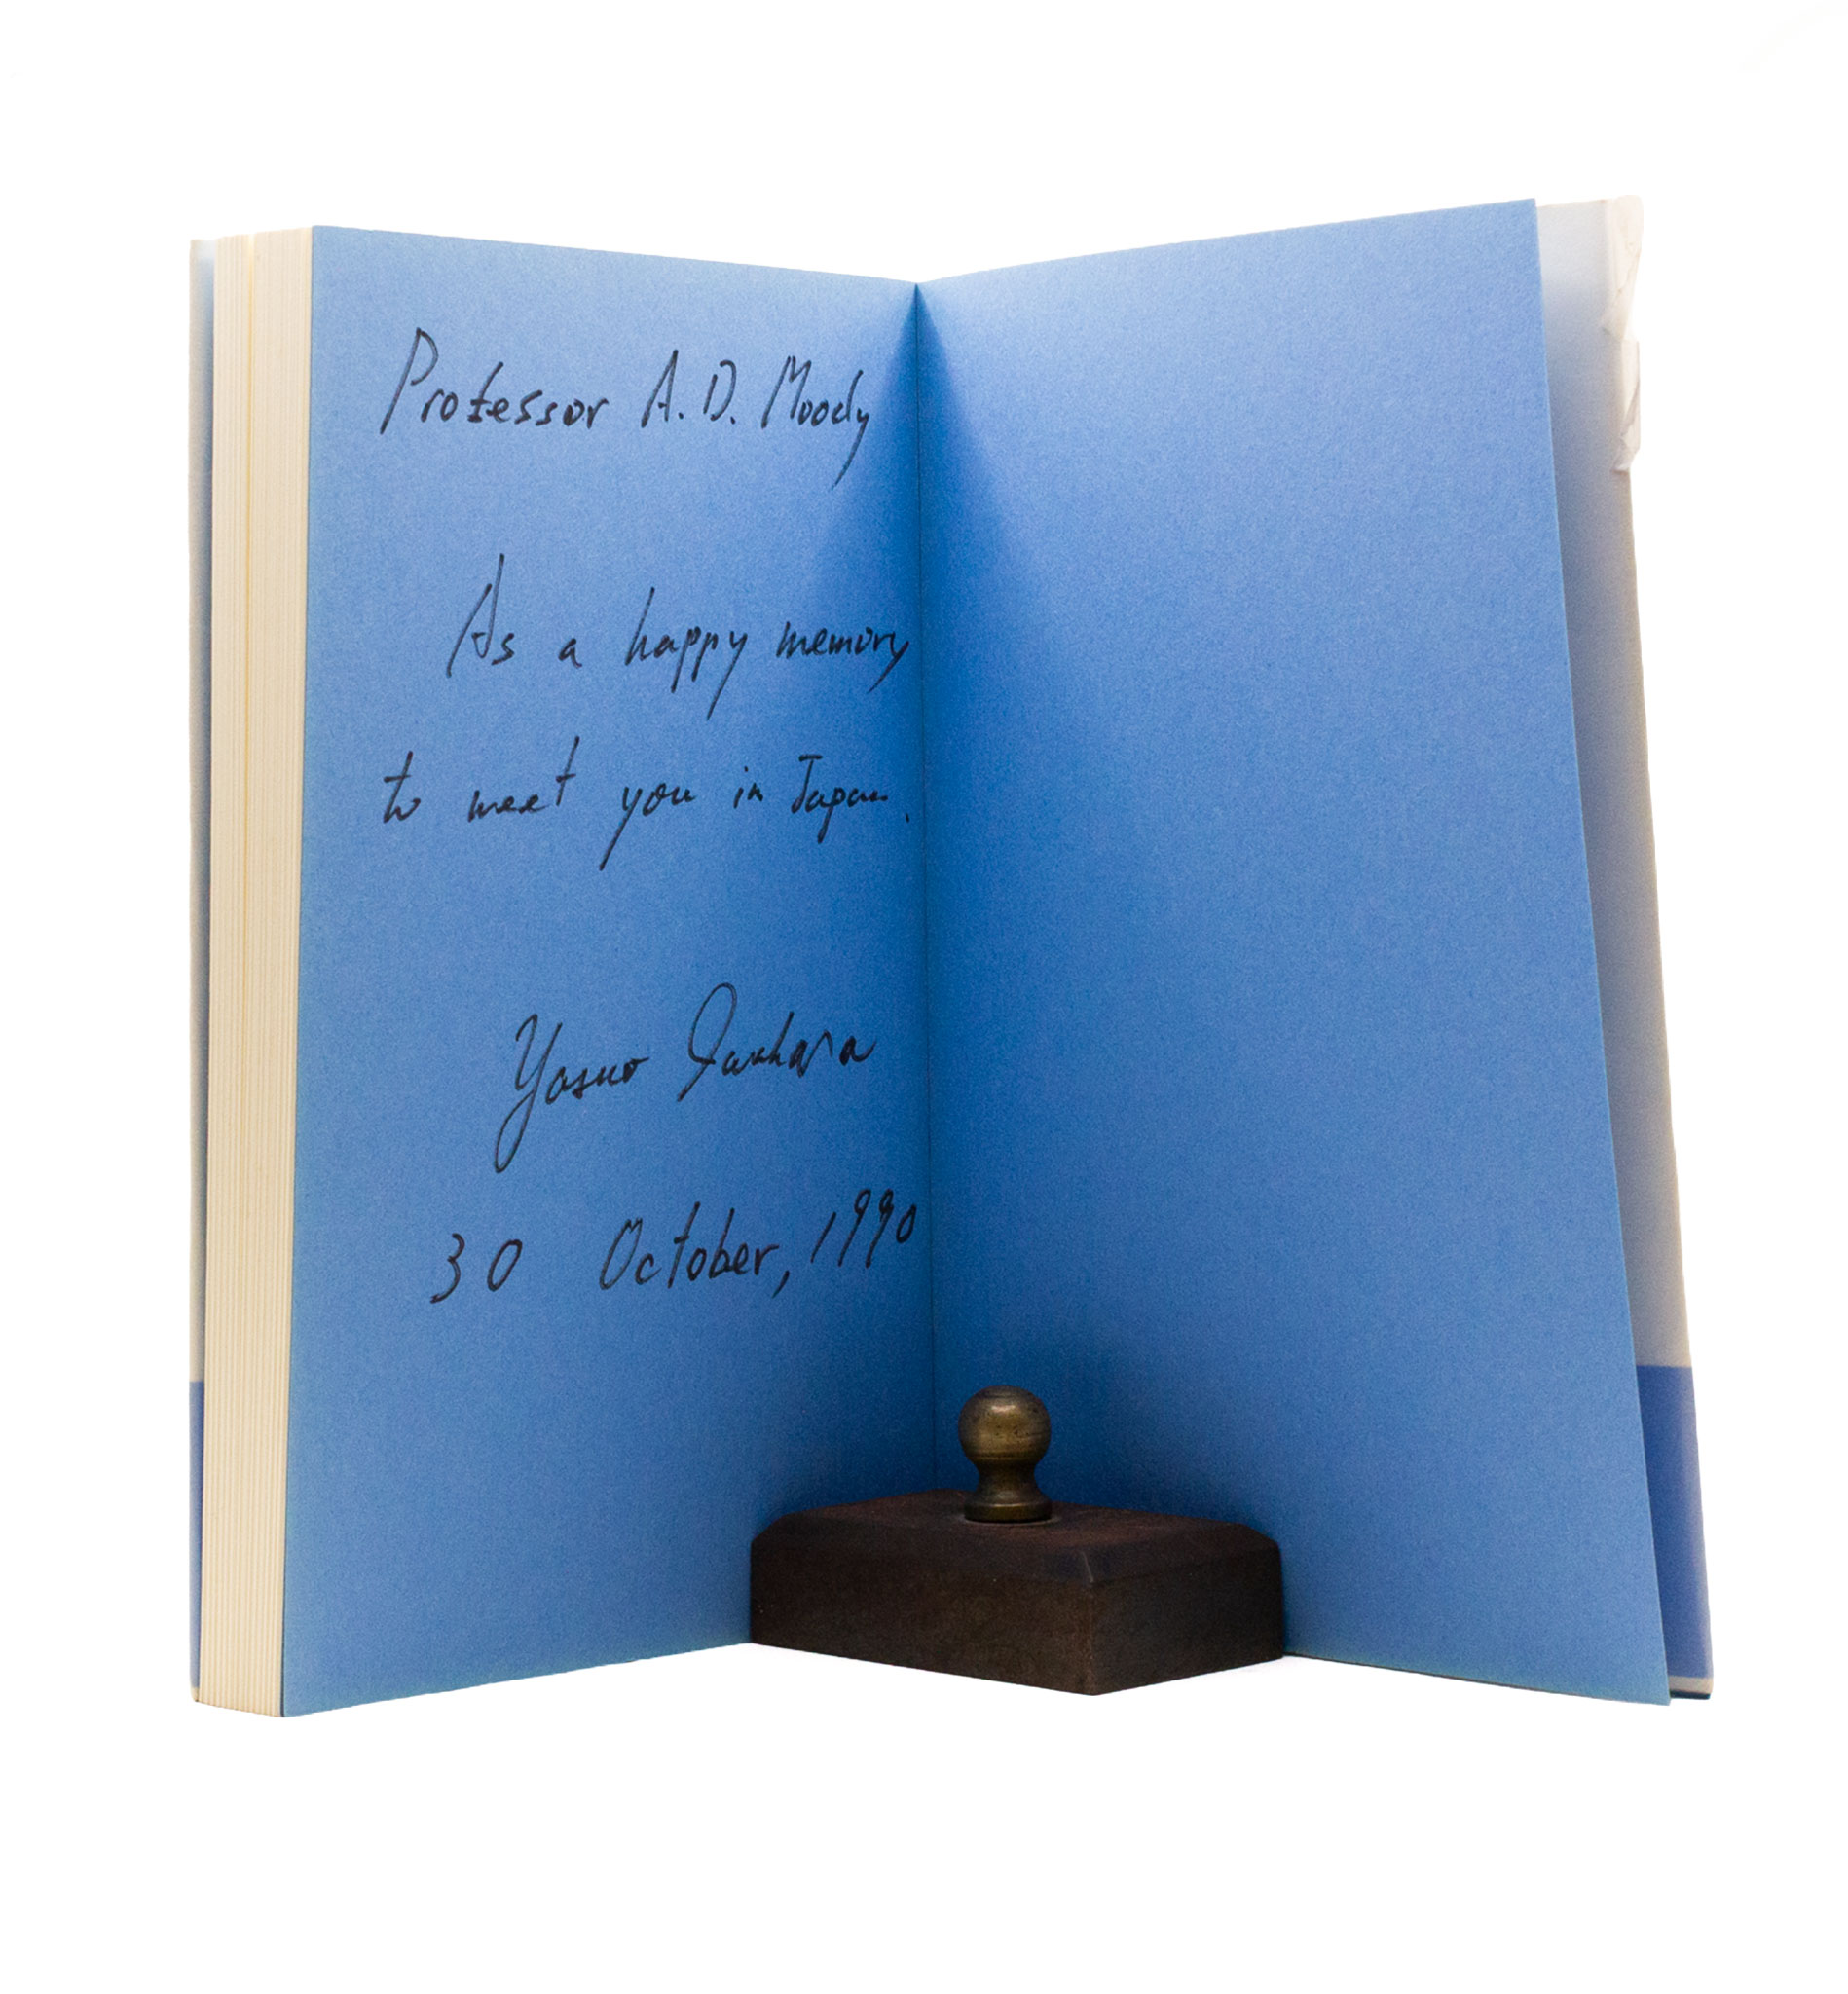 Professor A. D. Moody
As a happy memory
to meet you in Japan.
Yasuo Iwahara
30 October, 1990